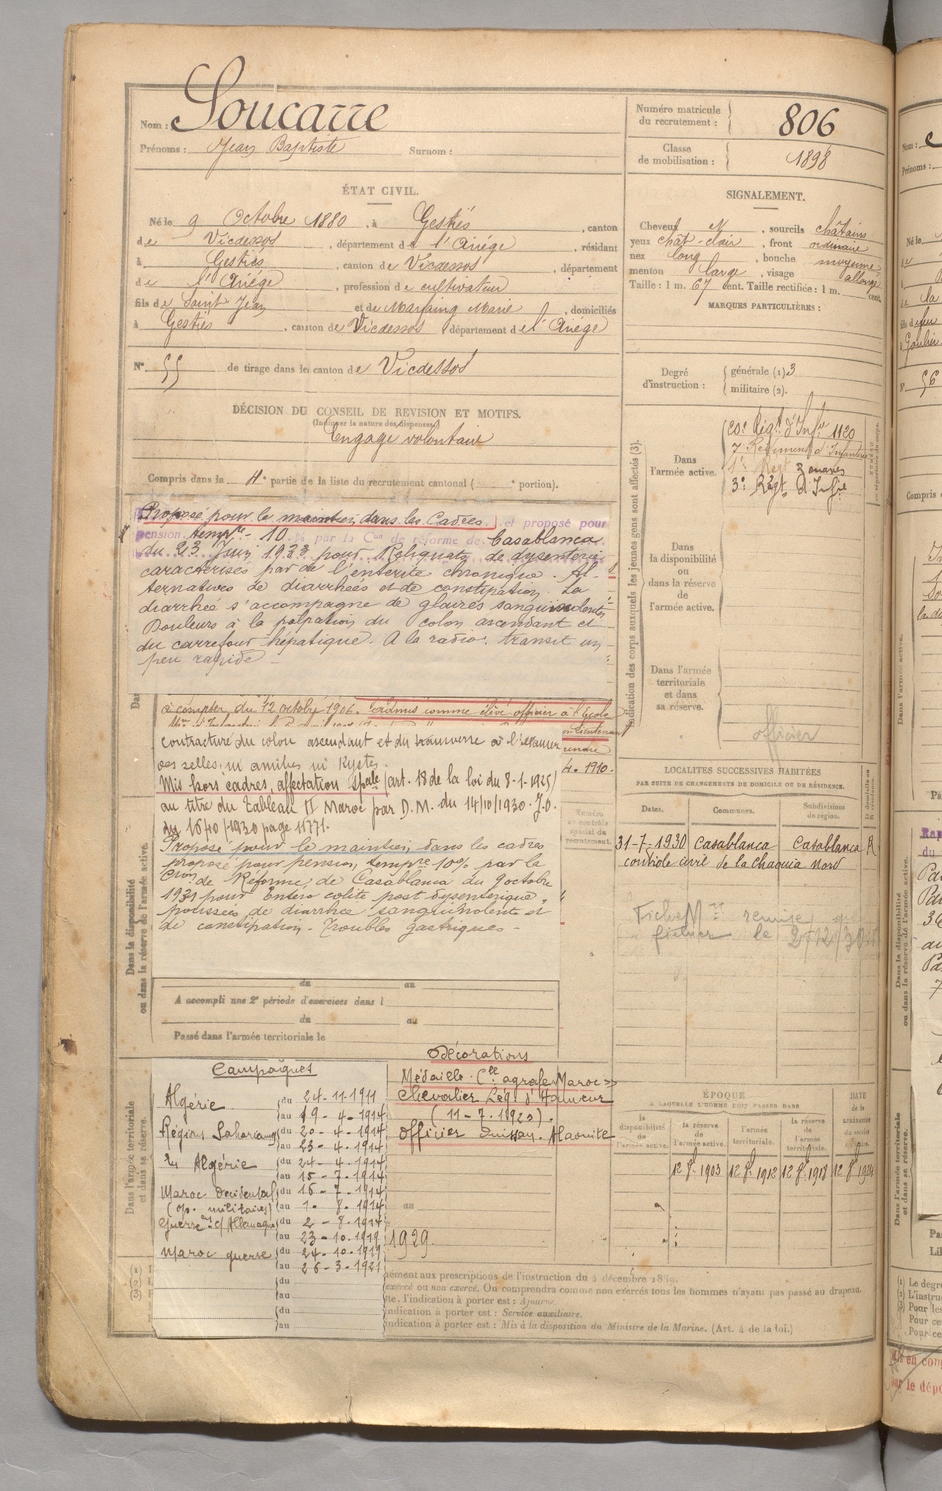 Nom : Soucarre
Prénoms : Jean Baptiste Surnom :
Numéro matricule du recrutement : 806
Classe de mobilisation : 1898
ÉTAT CIVIL.
Né le 9 Octobre 1880, à Gestiès, canton
de Vicdessos, département de l'Ariège, résidant
à Gestiès, canton de Vicdessos, département
de l'Ariège, profession de cultivateur
fils de Saint Jean et de Marfaing Marie, domiciliés
à Gestiès, canton de Vicdessos département de l'Ariège
N° 55 de tirage dans le canton de Vicdessos
DÉCISION DU CONSEIL DE REVISION ET MOTIFS.
(Indiquer la nature des dispenses)
Engagé volontaire
Compris dans la 4e partie de la liste du recrutement cantonal ( portion).
SIGNALEMENT.
Cheveux N, sourcils châtains
yeux chât-clair, front ordinaire
nez long, bouche moyenne
menton large, visage allongé
Taille : 1 m. 67 cent. Taille rectifiée : 1 m. cent.
MARQUES PARTICULIÈRES :
Degré d'instruction : générale (1) 3
militaire (2).
Indication des corps auxquels les jeunes gens sont affectés (3).
Dans l'armée active.
20e Régt d'Infie 1120
7e Régiment d'Infanterie
1er Régt Zouaves
3e Régt d'Infie
Dans la disponibilité ou dans la réserve de l'armée active.
Dans l'armée territoriale et dans sa réserve.
officier
Proposé pour le maintien dans les Cadres. et proposé pour
pension tempre 10 % par la Con de réforme de Casablanca
du 23 Juin 1933 pour Reliquats de dysenterie
caractérisés par de l'entérite chronique. Al-
ternatives de diarrhées et de constipation. La
diarrhée s'accompagne de glaires sanguinolents
Douleurs à la palpation du colon ascendant et
du carrefour hépatique. A la radio : transit un
peu rapide -
à compter du 12 octobre 1906. admis comme élève officier à l'école
contracture du colon ascendant et du transverse à l'examen
des selles, ni amibes ni Kystes.
Mis hors cadres, affectation spale (art. 18 de la loi du 8-1-1925)
au titre du Tableau II Maroc par D.M. du 14/10/1930. J.O.
du 16/10/1930 page 11771.
Proposé pour le maintien dans les cadres
proposé pour pension tempre 10% par la
Cion de Réforme de Casablanca du 9 octobre
1931 pour Entéro colite post dysentérique,
poussées de diarrhée sanguinolente et
de constipation - Troubles gastriques -
4. 1910.
Dans la disponibilité ou dans la réserve de l'armée active.
du au
A accompli une 2e période d'exercices dans l
du au
Passé dans l'armée territoriale le
LOCALITÉS SUCCESSIVES HABITÉES
PAR SUITE DE CHANGEMENTS DE DOMICILE OU DE RÉSIDENCE.
Dates. Communes. Subdivisions de région.
31-7-1930 Casablanca Casablanca R
contrôle civil de la chaouia nord
Fiche Mle remise au
fichier le 2/12/30
Dans l'armée territoriale et dans sa réserve.
Campagnes
Algérie du 24-11-1911
au 19-4-1914
Régions Sahariennes du 20-4-1914
au 23-4-1914
En Algérie du 24-4-1914
au 15-7-1914
Maroc occidental du 16-7-1914
(op. militaires) au 1-8-1914
Guerre c/Allemagne du 2-8-1914
au 23-10-1919
Maroc guerre du 24-10-1919
au 26-3-1921
du
au
du
au
Décorations
Médaille Cle agrafe "Maroc"
Chevalier Lég. d'Honneur
(11-7-1920).
Officier Ouissam Alaouite
1929
ÉPOQUE
A LAQUELLE L'HOMME DOIT PASSER DANS
la disponibilité de l'armée active. la réserve de l'armée active. l'armée territoriale. la réserve de l'armée territoriale.
12 8. 1903 12 8. 1912 12 8. 1918 12 8. 1924
ément aux prescriptions de l'instruction du 4 décembre 1889.
exercé ou non exercé. On comprendra comme non exercés tous les hommes n'ayant pas passé au drapeau.
te. l'indication à porter est : Ajourné.
ndication à porter est : Service auxiliaire.
ndication à porter est : Mis à la disposition du Ministre de la Marine. (Art. 4 de la loi.)